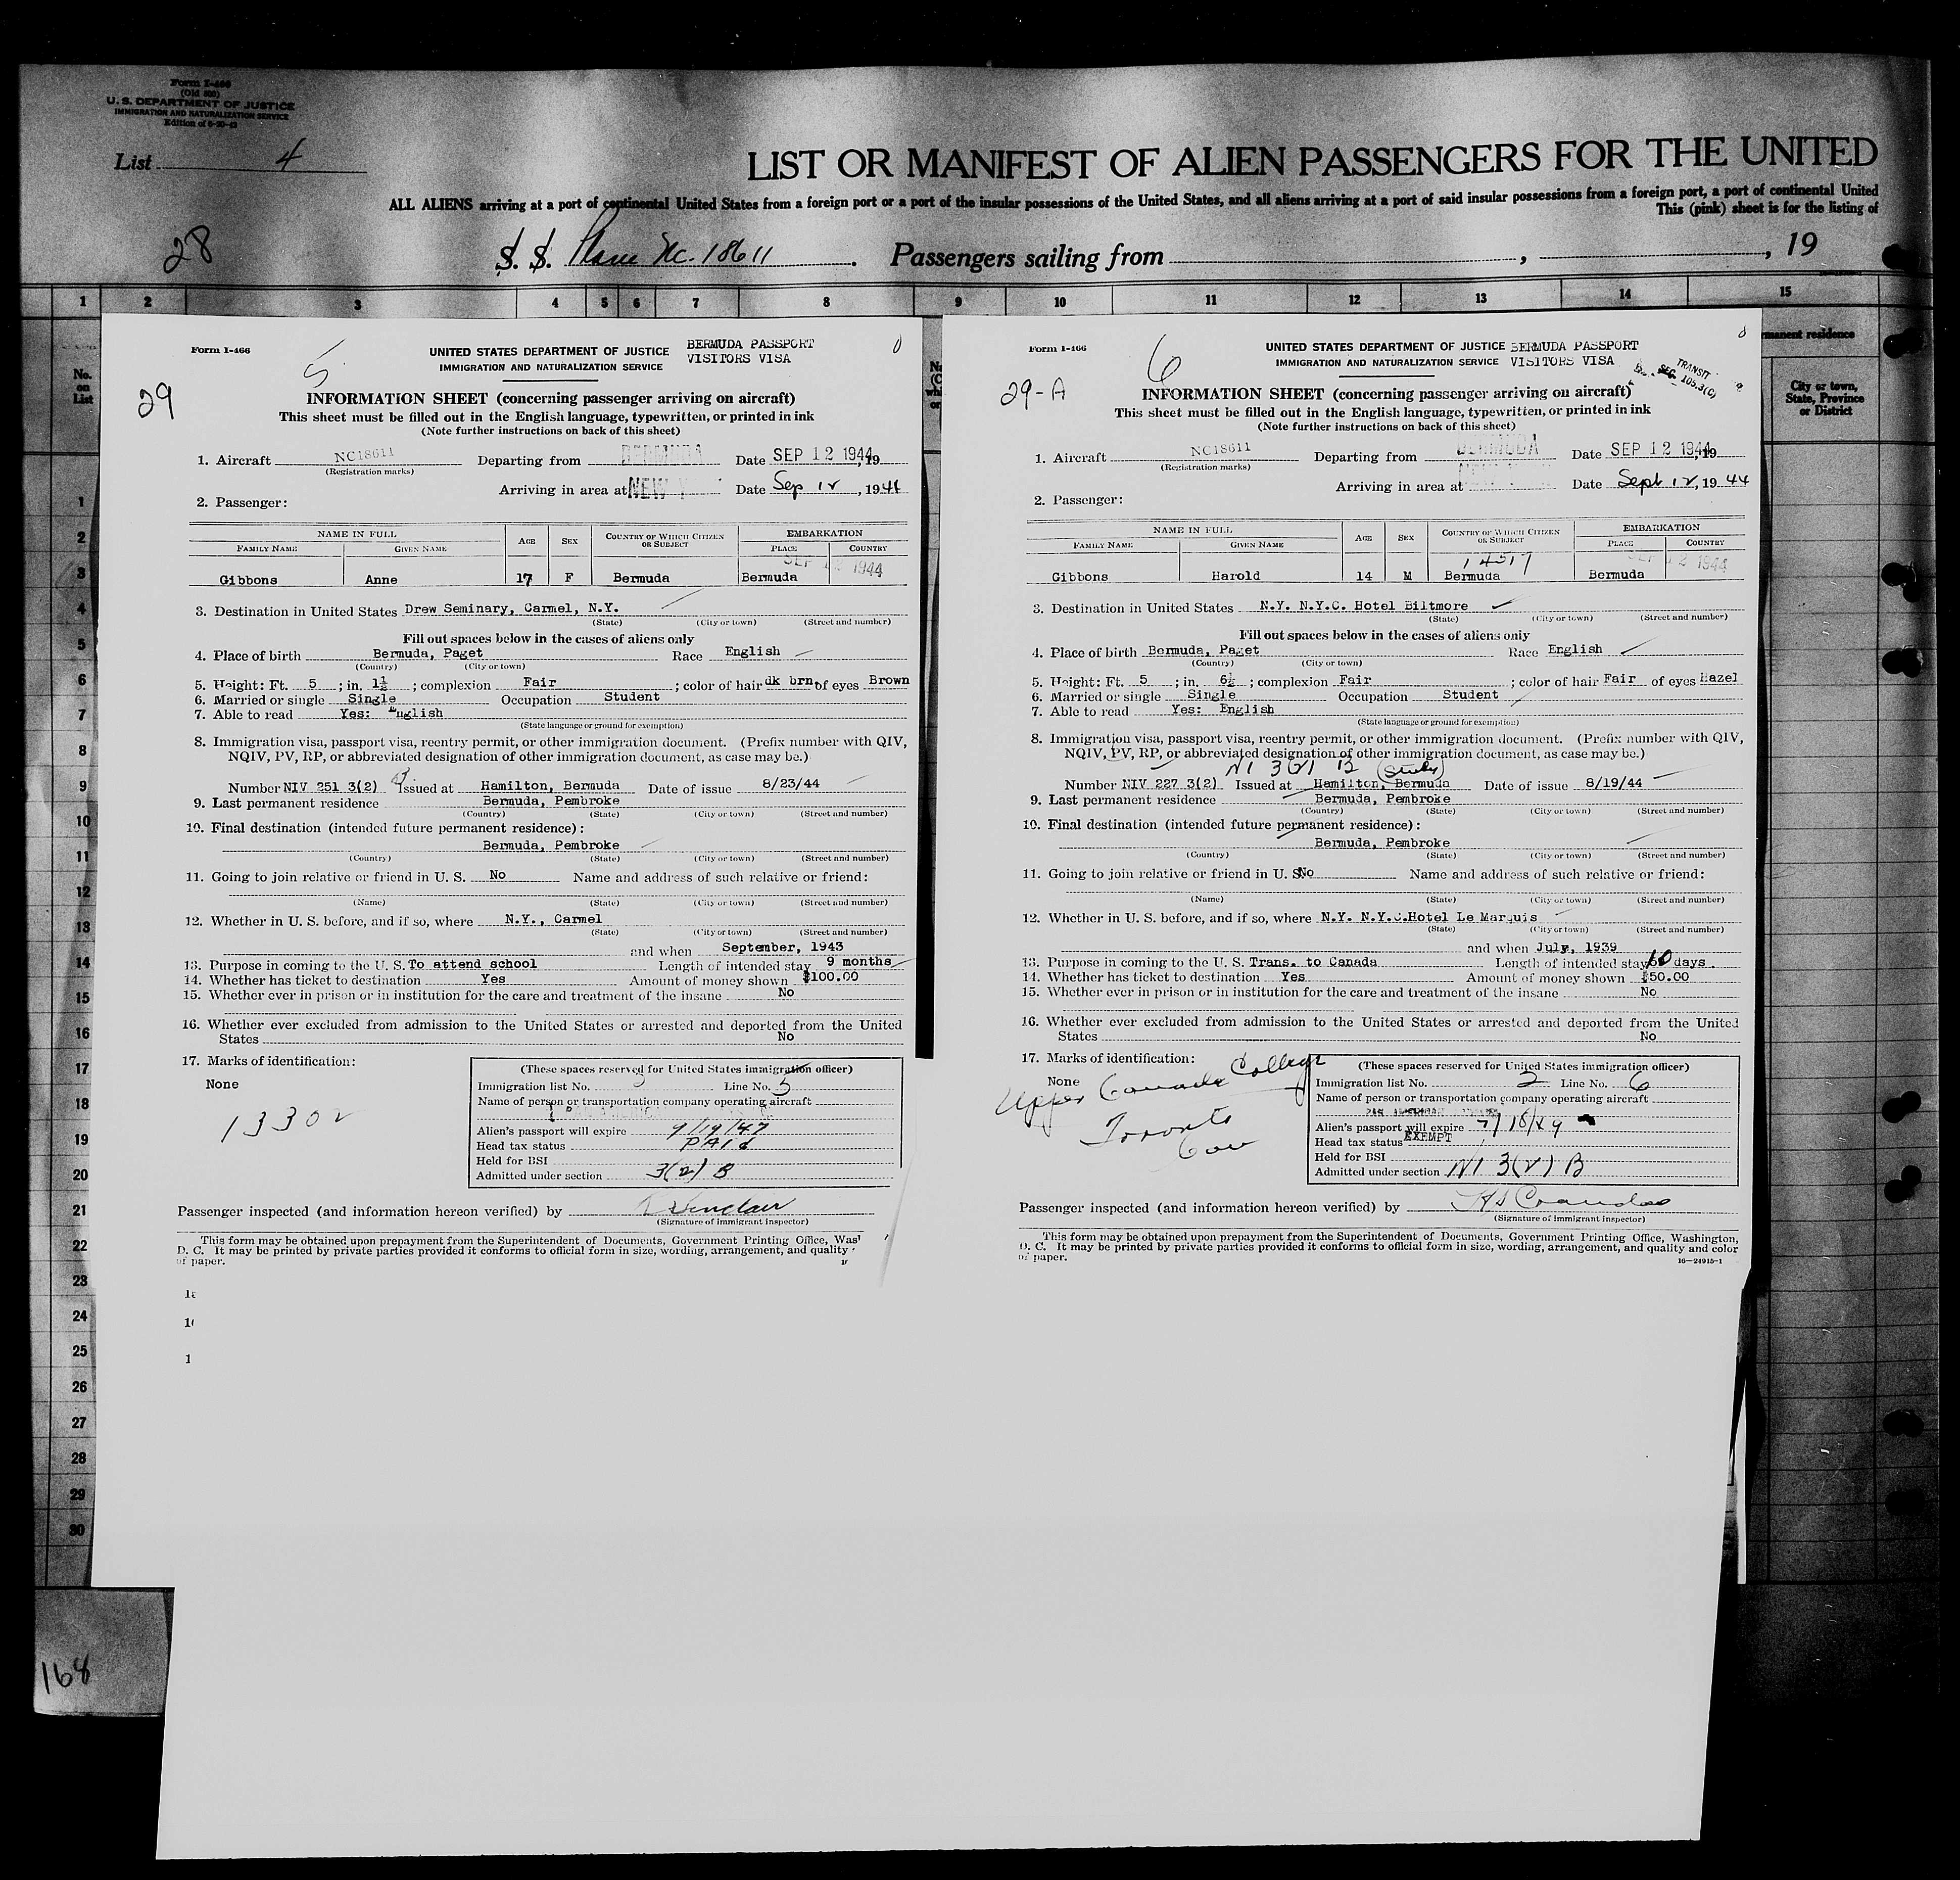 Form I-466
(Old 500)
U. S. DEPARTMENT OF JUSTICE
IMMIGRATION AND NATURALIZATION SERVICE
Edition of 6-20-43
List 4
LIST OR MANIFEST OF ALIEN PASSENGERS FOR THE UNITED
ALL ALIENS arriving at a port of continental United States from a foreign port or a port of the insular possessions of the United States, and all aliens arriving at a port of said insular possessions from a foreign port, a port of continental United
This (pink) sheet is for the listing of
28
S. S. Plane NC. 18611. Passengers sailing from , , 19
1 2 3 4 5 6 7 8 9 10 11 12 13 14 15
No. on List
permanent residence
City or town, State, Province or District
1
2
3
4
5
6
7
8
9
10
11
12
13
14
15
16
17
18
19
20
21
22
23
24
25
26
27
28
29
30
168
Form I-466
5
29
UNITED STATES DEPARTMENT OF JUSTICE
IMMIGRATION AND NATURALIZATION SERVICE
BERMUDA PASSPORT
VISITORS VISA
INFORMATION SHEET (concerning passenger arriving on aircraft)
This sheet must be filled out in the English language, typewritten, or printed in ink
(Note further instructions on back of this sheet)
1. Aircraft NC18611 Departing from BERMUDA Date SEP 12 1944, 19
(Registration marks)
Arriving in area at NEW Date Sep 12, 1944
2. Passenger:
NAME IN FULL AGE SEX COUNTRY OF WHICH CITIZEN OR SUBJECT EMBARKATION
FAMILY NAME GIVEN NAME PLACE COUNTRY
SEP 12 1944
Gibbons Anne 17 F Bermuda Bermuda
3. Destination in United States Drew Seminary, Carmel, N.Y.
(State) (City or town) (Street and number)
Fill out spaces below in the cases of aliens only
4. Place of birth Bermuda, Paget Race English
(Country) (City or town)
5. Height: Ft. 5 ; in. 1½ ; complexion Fair ; color of hair dk brn. of eyes Brown
6. Married or single Single Occupation Student
7. Able to read Yes: English
(State language or ground for exemption)
8. Immigration visa, passport visa, reentry permit, or other immigration document. (Prefix number with QIV,
NQIV, PV, RP, or abbreviated designation of other immigration document, as case may be.)
Number NIV 251 3(2) Issued at Hamilton, Bermuda Date of issue 8/23/44
9. Last permanent residence Bermuda, Pembroke
(Country) (State) (City or town) (Street and number)
10. Final destination (intended future permanent residence):
Bermuda, Pembroke
(Country) (State) (City or town) (Street and number)
11. Going to join relative or friend in U. S. No Name and address of such relative or friend:
(Name) (State) (City or town) (Street and number)
12. Whether in U. S. before, and if so, where N.Y., Carmel
(State) (City or town) (Street and number)
and when September, 1943
13. Purpose in coming to the U. S. To attend school Length of intended stay 9 months
14. Whether has ticket to destination Yes Amount of money shown $100.00
15. Whether ever in prison or in institution for the care and treatment of the insane No
16. Whether ever excluded from admission to the United States or arrested and deported from the United
States No
17. Marks of identification:
None
13302
(These spaces reserved for United States immigration officer)
Immigration list No. Line No. 5
Name of person or transportation company operating aircraft
PAN AMERICAN
Alien's passport will expire 9/19/47
Head tax status PAId
Held for BSI
Admitted under section 3(2) B
Passenger inspected (and information hereon verified) by Sinclair
(Signature of immigrant inspector)
This form may be obtained upon prepayment from the Superintendent of Documents, Government Printing Office, Was
D. C. It may be printed by private parties provided it conforms to official form in size, wording, arrangement, and quality
of paper.
Form I-466
6
29-A
UNITED STATES DEPARTMENT OF JUSTICE
IMMIGRATION AND NATURALIZATION SERVICE
BERMUDA PASSPORT
VISITORS VISA
TRANSIT
SEC. 105.3(C)
INFORMATION SHEET (concerning passenger arriving on aircraft)
This sheet must be filled out in the English language, typewritten, or printed in ink
(Note further instructions on back of this sheet)
1. Aircraft NC18611 Departing from BERMUDA Date SEP 12 1944, 19
(Registration marks)
Arriving in area at Date Sept 12, 1944
2. Passenger:
NAME IN FULL AGE SEX COUNTRY OF WHICH CITIZEN OR SUBJECT EMBARKATION
FAMILY NAME GIVEN NAME PLACE COUNTRY
14517 SEP 12 1944
Gibbons Harold 14 M Bermuda Bermuda
3. Destination in United States N.Y. N.Y.C. Hotel Biltmore
(State) (City or town) (Street and number)
Fill out spaces below in the cases of aliens only
4. Place of birth Bermuda, Paget Race English
(Country) (City or town)
5. Height: Ft. 5 ; in. 6½ ; complexion Fair ; color of hair Fair of eyes Hazel
6. Married or single Single Occupation Student
7. Able to read Yes: English
(State language or ground for exemption)
8. Immigration visa, passport visa, reentry permit, or other immigration document. (Prefix number with QIV,
NQIV, PV, RP, or abbreviated designation of other immigration document, as case may be.)
NI 3(2) B (Study)
Number NIV 227 3(2) Issued at Hamilton, Bermuda Date of issue 8/19/44
9. Last permanent residence Bermuda, Pembroke
(Country) (State) (City or town) (Street and number)
10. Final destination (intended future permanent residence):
Bermuda, Pembroke
(Country) (State) (City or town) (Street and number)
11. Going to join relative or friend in U. S. No Name and address of such relative or friend:
(Name) (State) (City or town) (Street and number)
12. Whether in U. S. before, and if so, where N.Y. N.Y.C. Hotel Le Marquis
(State) (City or town) (Street and number)
and when July, 1939
13. Purpose in coming to the U. S. Trans. to Canada Length of intended stay 10 days
14. Whether has ticket to destination Yes Amount of money shown $50.00
15. Whether ever in prison or in institution for the care and treatment of the insane No
16. Whether ever excluded from admission to the United States or arrested and deported from the United
States No
17. Marks of identification:
None
Upper Canada College
Toronto
Can
(These spaces reserved for United States immigration officer)
Immigration list No. 2 Line No. 6
Name of person or transportation company operating aircraft
PAN AMERICAN
Alien's passport will expire 7/18/49
Head tax status EXEMPT
Held for BSI
Admitted under section NI 3(2) B
Passenger inspected (and information hereon verified) by
(Signature of immigrant inspector)
This form may be obtained upon prepayment from the Superintendent of Documents, Government Printing Office, Washington,
D. C. It may be printed by private parties provided it conforms to official form in size, wording, arrangement, and quality and color
of paper.
16—24915-1